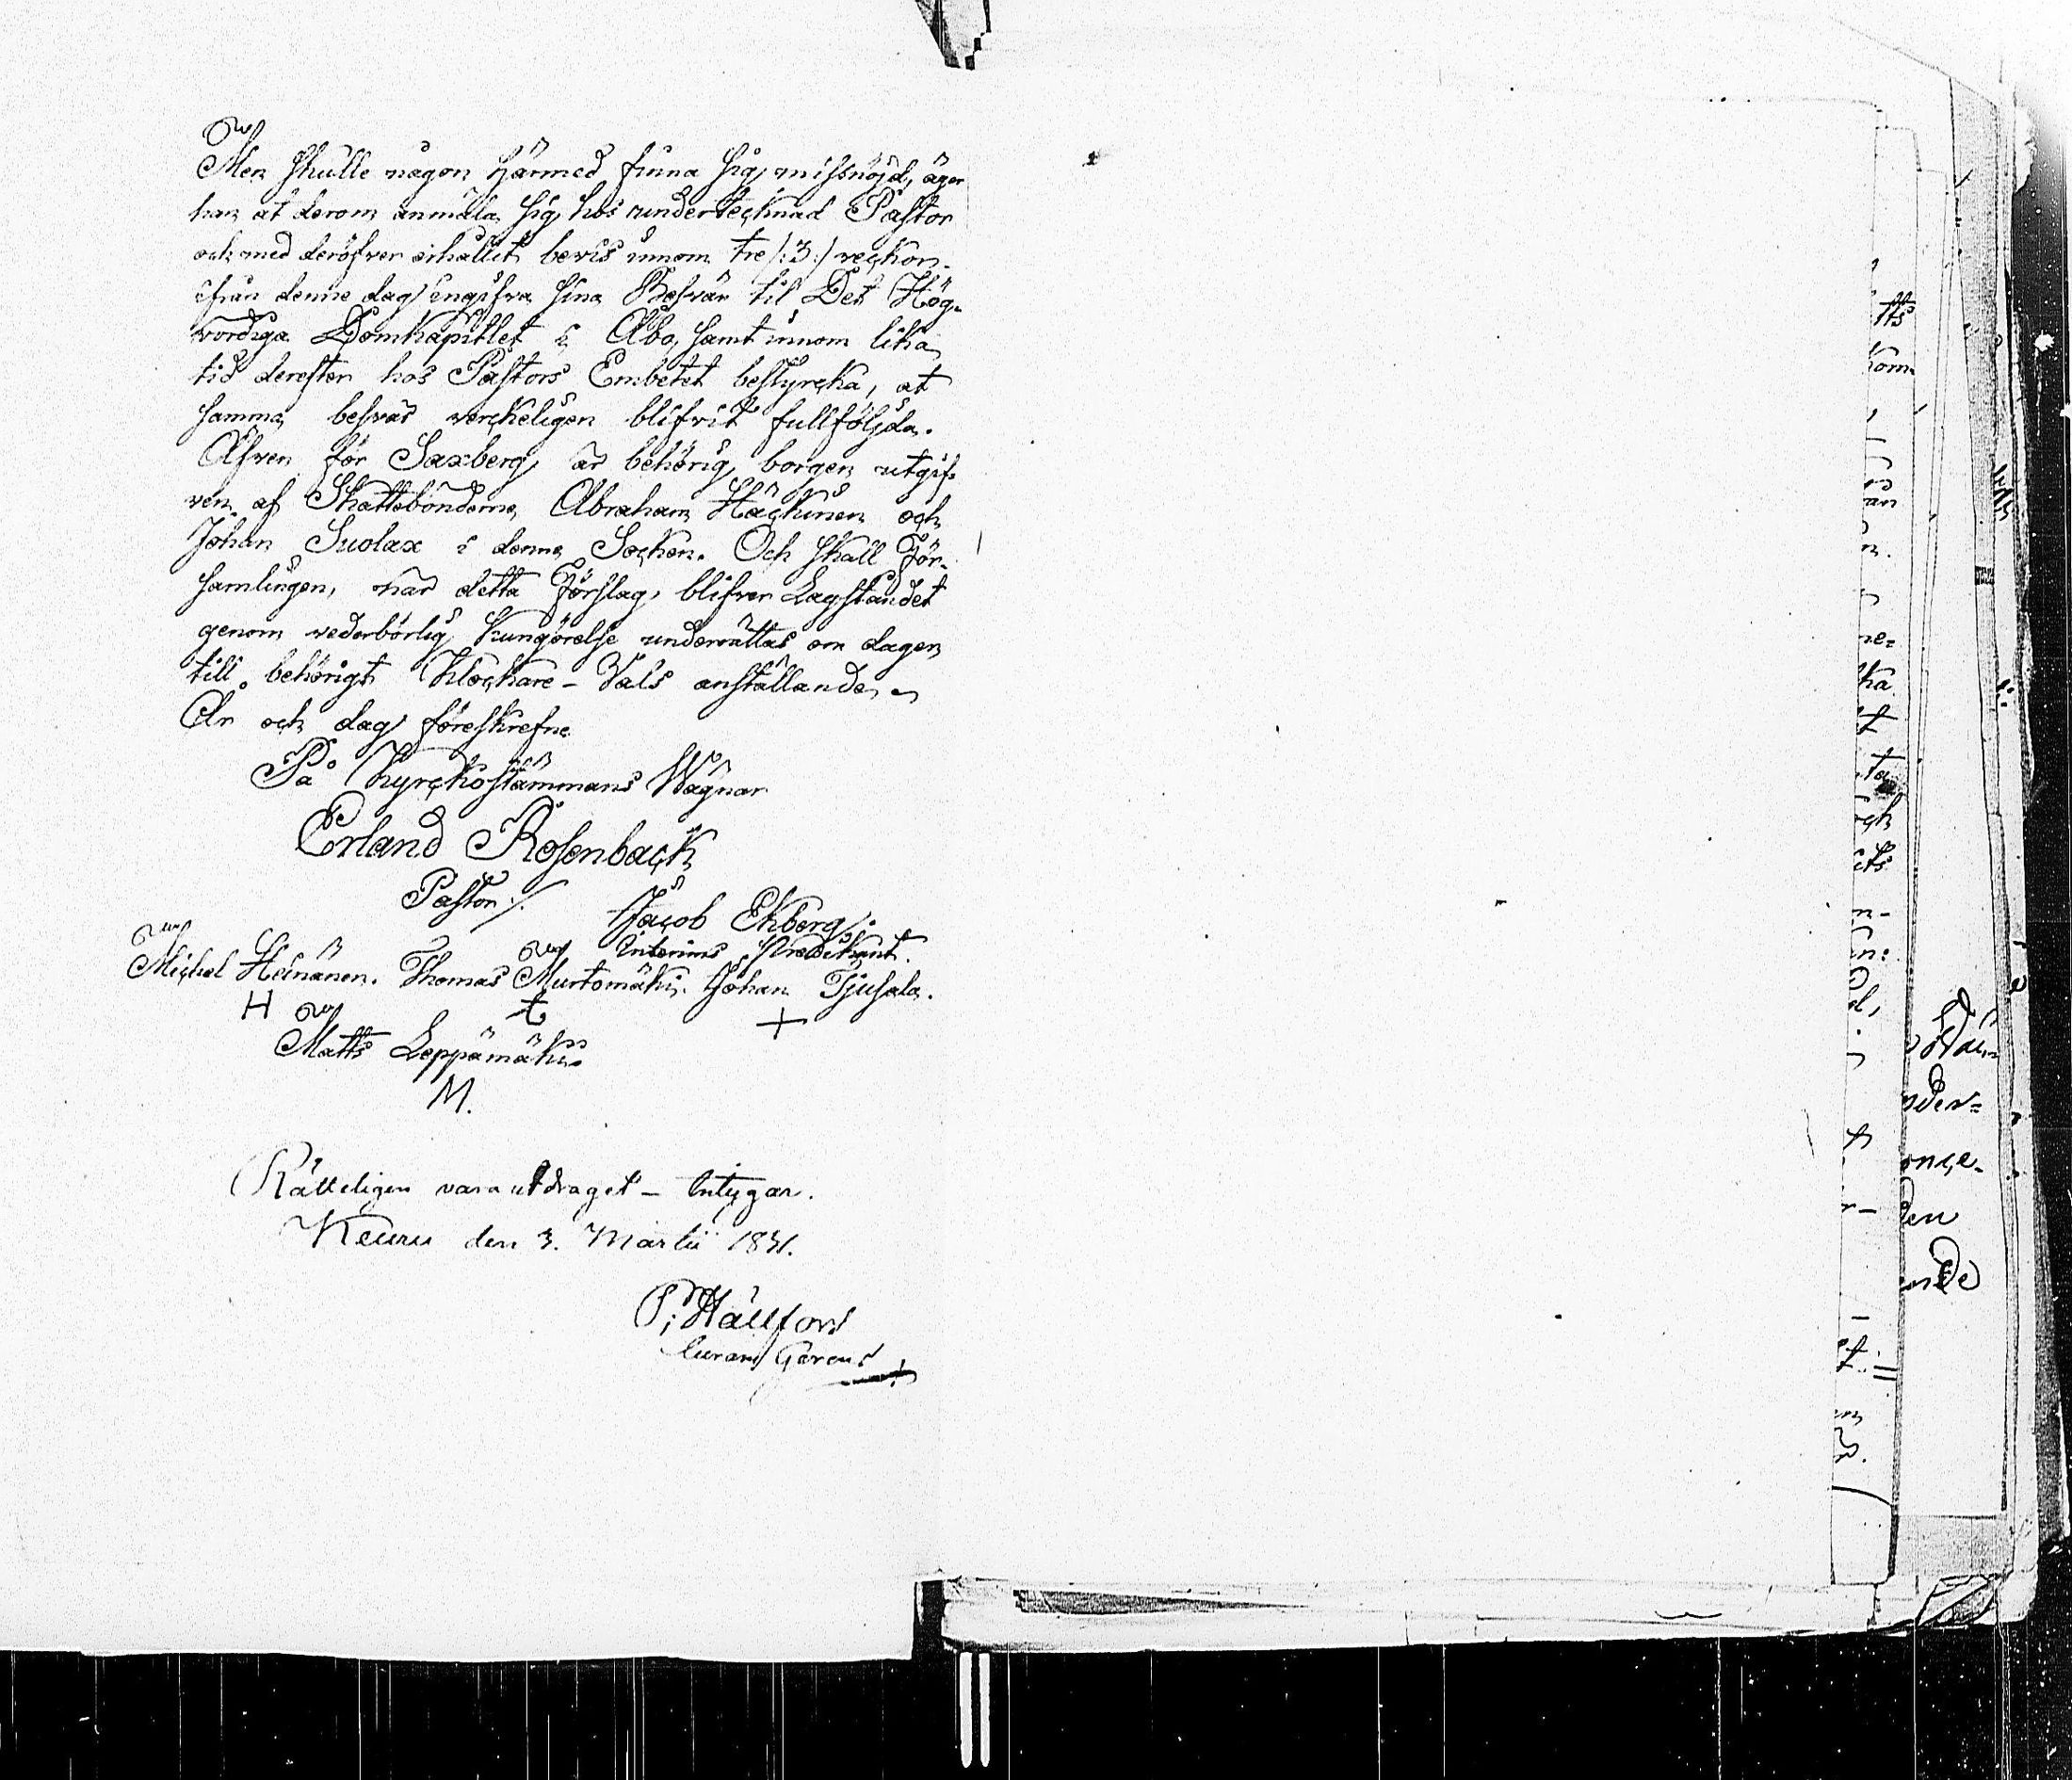 Men skulle någon härmed finna sig missnöjd, äger
han at derom anmäla sig hos undertecknad Pastor
och med deröfver erhållit bevis innom tre /:3:/ veckor
ifrån denne dag ingifva sina Besvär til Det Hög-
vördiga Domkapitlet i Åbo, samt innom lika
tid derefter hos Pastors Embetet bestyrcka, at
samma besvär verckeligen blifvit fullföljda.
Äfven för Saxberg är behörig borgen utgif-
ven af Skattebönderne Abraham Häckinen och
Johan Suolax i denne Socken. Och skall För-
samlingen, när detta Förslag blifver Lagståndet
genom vederbörlig kungörelse underrättas om dagen
till behörigt Klockare-Vals anställande
År och dag föreskrefne
På Kyrckostämmans Wägnar
Erland Rosenback
Pastor /.
Jacob Ekberg /.
Interims Predikant.
Michel Heinänen. Thomas Murtomäki. Johan Tjusala.
H t +
Matts Leppämäki
M.
Rätteligen vara utdraget - Intygar.
Keuru den 3. Martii 1831.
P; Hällfors
Curam Gerens
tts
kom
än
ne=
ka
t
ta
och
its
n-
n:
d,
r-
t.
m
der=
once-
den
nde